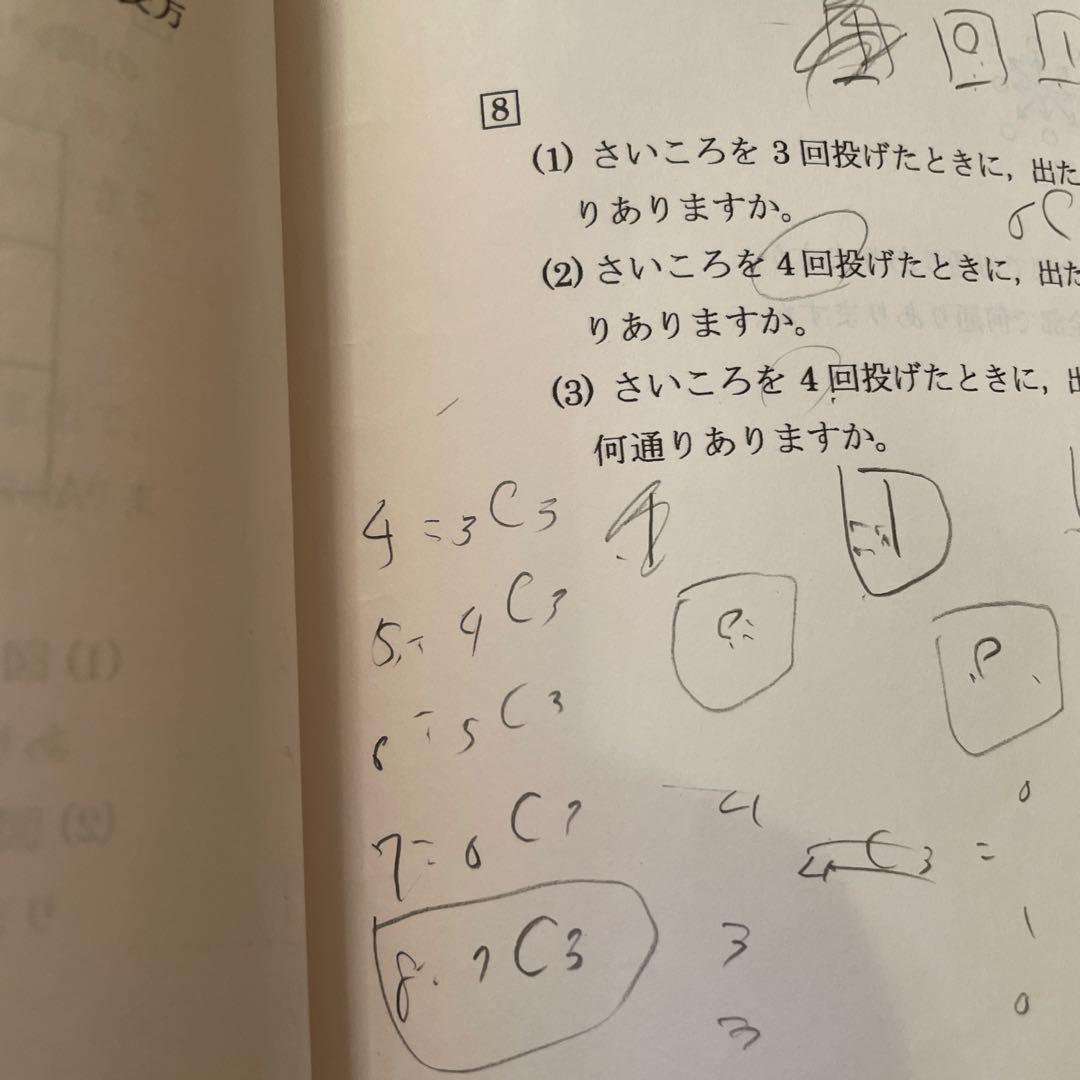 0 1
8
(1) さいころを 3 回投げたときに, 出た
りありますか。
(2) さいころを 4 回投げたときに, 出た
りありますか。
(3) さいころを 4 回投げたときに, 出
何通りありますか。
4 = 3C3
5 = 4C3
6 = 5C3
7 = 6C3
4 0
4C3 =
8. 7C3
3 1
3 0